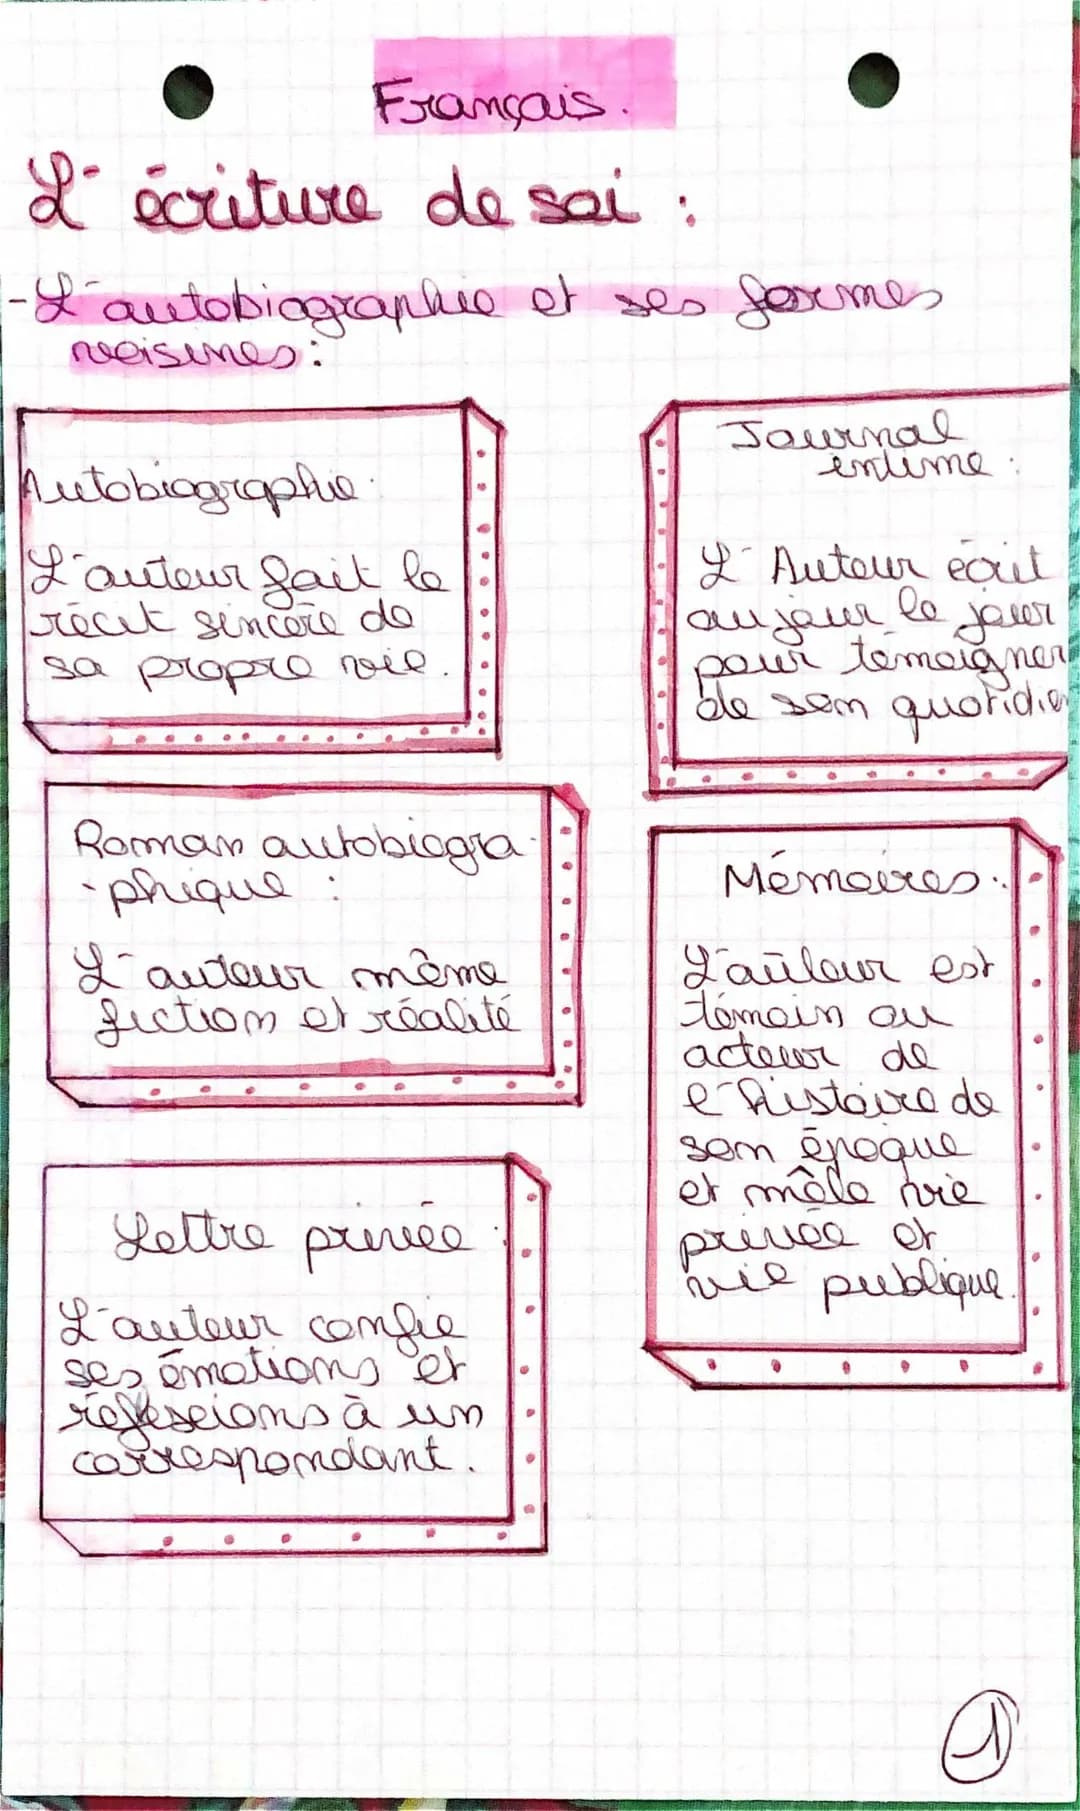 Français.
L'écriture de soi :
- L'autobiographie et ses formes
voisines :
Autobiographie :
L'auteur fait le
récit sincère de
sa propre vie.
Journal
intime :
L'Auteur écrit
au jour le jour
pour témoigner
de son quotidien
Roman autobiogra-
-phique :
L'auteur même
fiction et réalité
Mémoires :
L'auteur est
témoin ou
acteur de
l'histoire de
son époque
et mêle vie
privée et
vie publique.
Lettre privée :
L'auteur confie
ses émotions et
réflexions à un
correspondant.
1